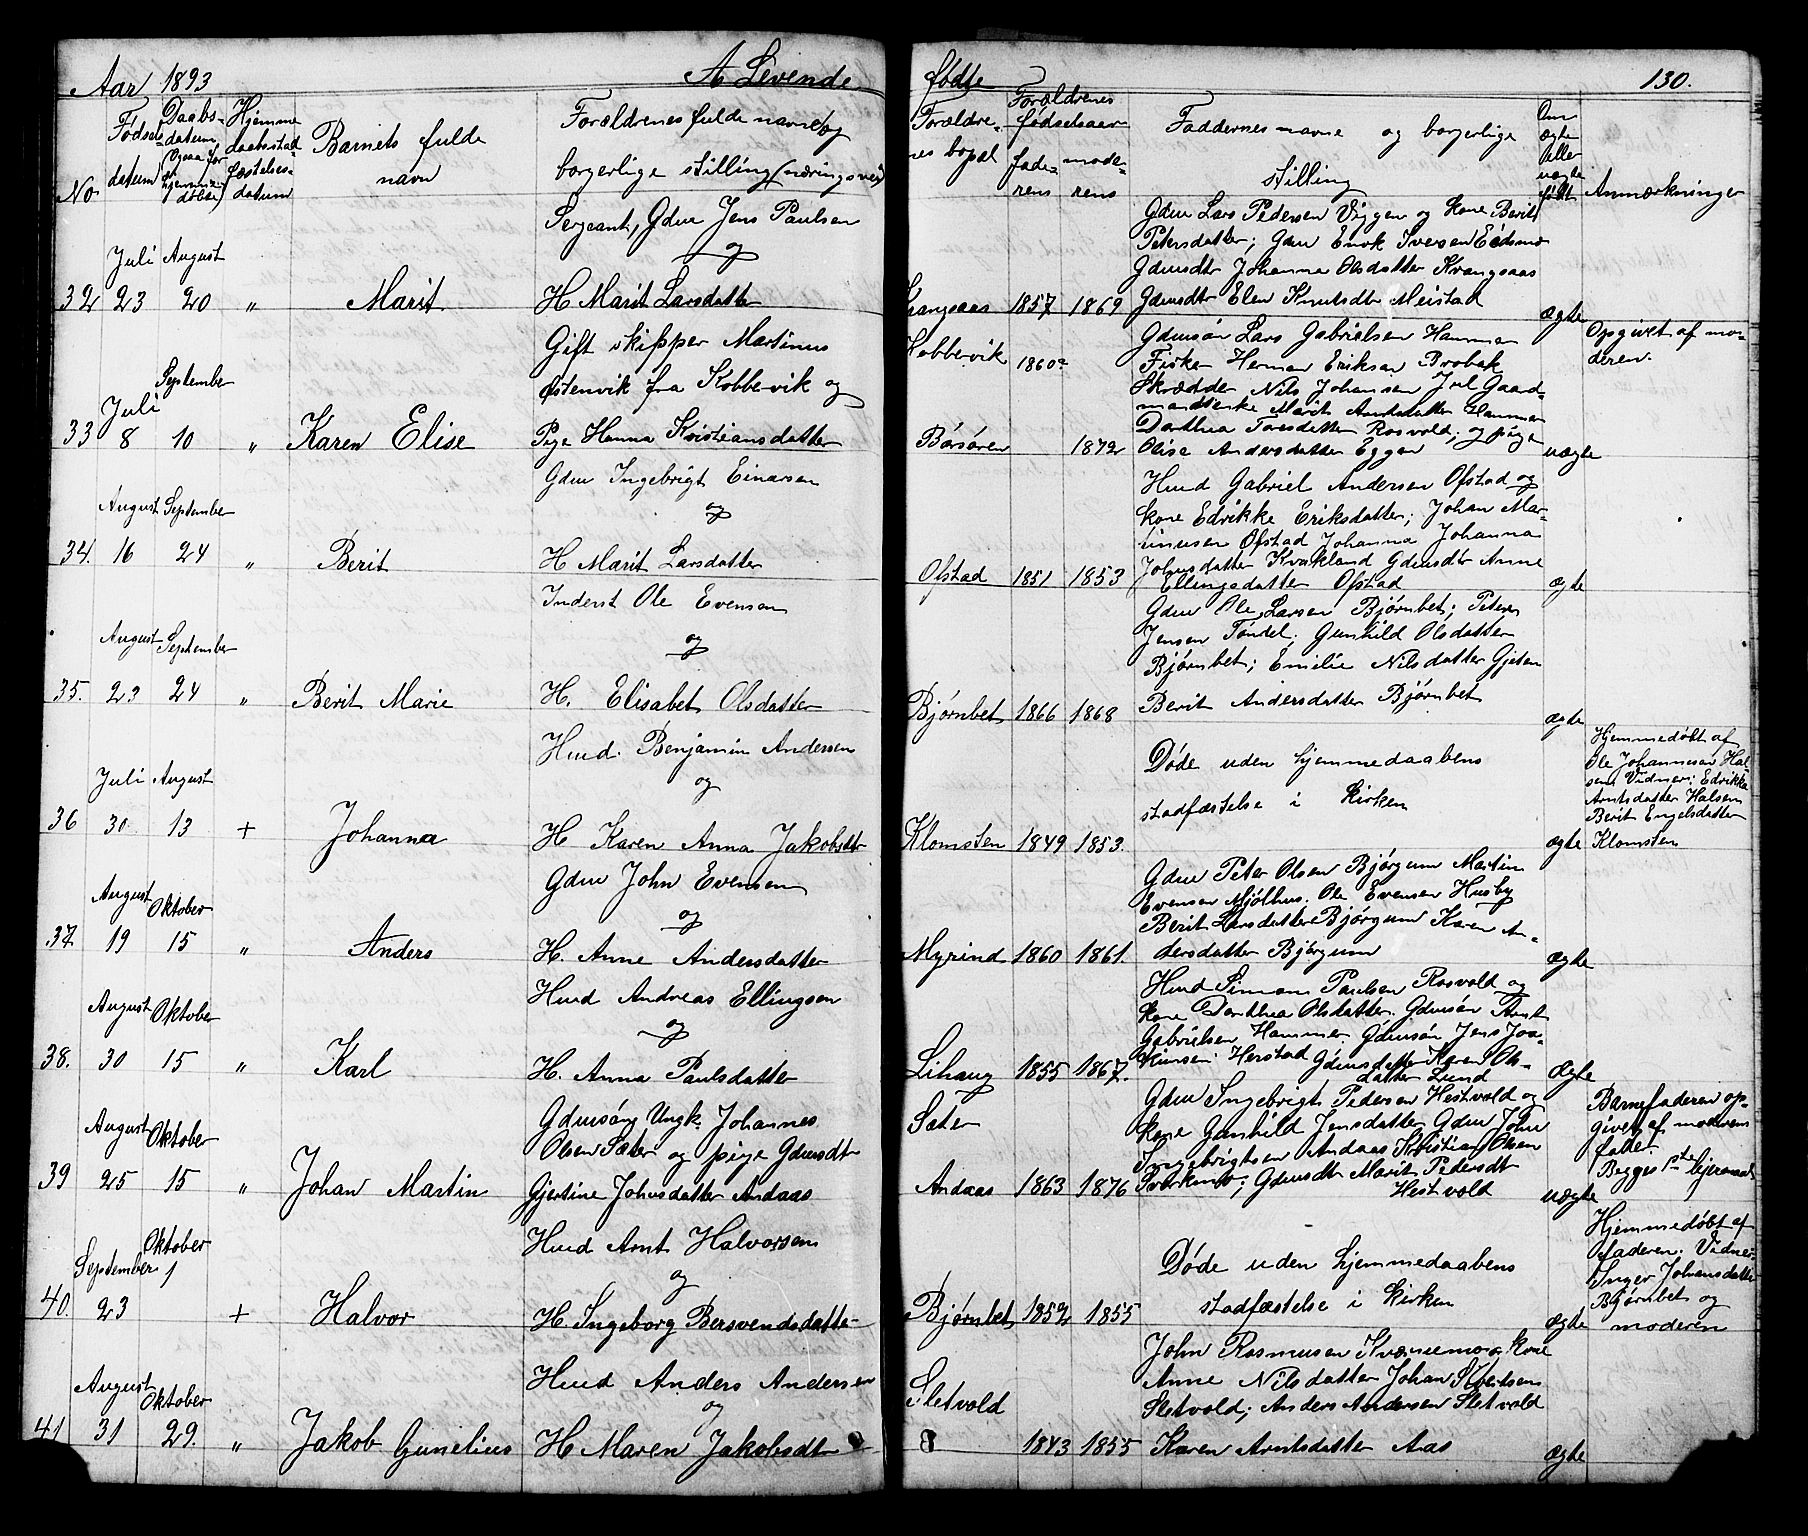 Aar 1893 A Levende fødte 130.
No
Fødsels- datum
Daabs- datum (Ogsaa for hjemme- døbte)
Hjemme daabsstad fæstelses- datum
Barnets fulde navn
Forældrenes fulde navne og borgerlige stilling (næringsvei)
Forældre- nes bopæl
Forældrenes fødselsaar
fade- rens
mode- rens
Faddernes navne og borgerlige stilling
Om ægte eller uægte født
Anmærkninger
32 Juli 23 August 20 " Marit
Sergeant, Gdm Jens Paulsen
og
H Marit Larsdatter
Krangsaas 1857 1869
Gdm Lars Pedersen Viggen og kone Berit
Petersdatter; Gdm Enok Iversen Eidsmo
Gdmsdtr Johanna Olsdatter Krangsaas
Gdmsdtr Elen Knutsdtr Meistad
ægte
33 Juli 8 September 10 " Karen Elise
Gift skipper Martinus
Østenvik fra Kobbervik og
Pige Hanna Kristiansdatter
Kobbervik 1860?
Børsøren 1872
Gdmsøn Lars Gabrielsen Hammer
Fisker Herman Eriksen Brobak
Skrædder Nils Johansen Jul Gaard-
mandsenke Marit Arntsdatter Hammer
Dorthea Toresdatter Rosvold; og pige
Olise Andersdatter Eggen
uægte
Opgivet af mo-
deren.
34. August 16 September 24 " Berit
Gdm Ingebrigt Einarsen
og
H Marit Larsdatter
Ofstad 1851 1853
Hmd Gabriel Andersen Ofstad og
kone Edrikke Eriksdatter; Johan Mar-
tinusen Ofstad Johanna Johanna
Johnsdatter Kvakland Gdmsdtr Anne
Ellingsdatter Ofstad
ægte
35. August 23 September 24 " Berit Marie
Inderst Ole Evensen
og
H. Elisabet Olsdatter
Bjørnbet 1866 1868
Gdm Ole Larsen Bjørnbet; Peter
Jensen Tøndel; Gunhild Olsdatter
Bjørnbet; Emilie Nilsdatter Gjeten
Berit Andersdatter Bjørnbet
ægte
36 Juli 30 August 13 + Johanna
Hmd. Benjamin Andersen
og
H Karen Anna Jakobsdtr
Klomsten 1849 1853.
Døde uden hjemmedaabens
stadfæstelse i kirken
ægte
Hjemmedøbt af
Ole Johannesen Hal
sen Vidner: Edrikke
Arntsdatter Halsen
Berit Engelsdatter
Klomsten
37. August 19 Oktober 15 " Anders
Gdm John Evensen
og
H. Anne Andersdatter
Myrind 1860 1861.
Gdm Peter Olsen Bjørgum Martin
Evensen Mjølhus. Ole Evensen Husby
Berit Larsdatter Bjørgum Karen An-
dersdatter Bjørgum
ægte
38. August 30 Oktober 15 " Karl
Hmd Andreas Ellingsen
og
H. Anna Paulsdatter
Lihaug 1855 1867.
Hmd Simon Paulsen Rosvold og
kone Dorthea Olsdatter. Gdmsøn Arnt
Gabrielsen Hammer Gdmsøn Jens Joa-
kimsen Herstad Gdmsdatter Karen Ols-
datter Lund
ægte
39 August 25 Oktober 15 " Johan Martin
Gdmsøn Ungk. Johannes
Olsen Sæter og pige Gdmsdtr
Gjertine Johnsdatter Andaas
Sæter
Andaas 1863 1876
Gdm Ingebrigt Pedersen Hestvold og
kone Gunhild Jensdatter Gdm John
Ingebrigtsen Andaas Kristian Olsen
Sværkmo; Gdmsdtr Marit Pedersdtr
Hestvold
uægte
Barnefaderen op-
givet af moderens
fader.
Begges 1ste leiermaal
40. September 23 Oktober 1 + Halvor
Hmd Arnt Halvorsen
og
H Ingeborg Bersvendsdatter
Bjørnbet 1852 1855
Døde uden hjemmedaabens
stadfæstelse i kirken
ægte
Hjemmedøbt af
faderen. Vidner
Inger Johansdatter
Bjørnbet og
moderen
41 August 31 Oktober 29. " Jakob Gunelius
Hmd Anders Andersen
og
H Maren Jakobsdtr
Sletvold 1843 1855
John Rasmusen Kværnmo og kone
Anne Nilsdatter Johan Sivertsen
Sletvold; Anders Andersen Sletvold
Karen Arntsdatter Aas
ægte